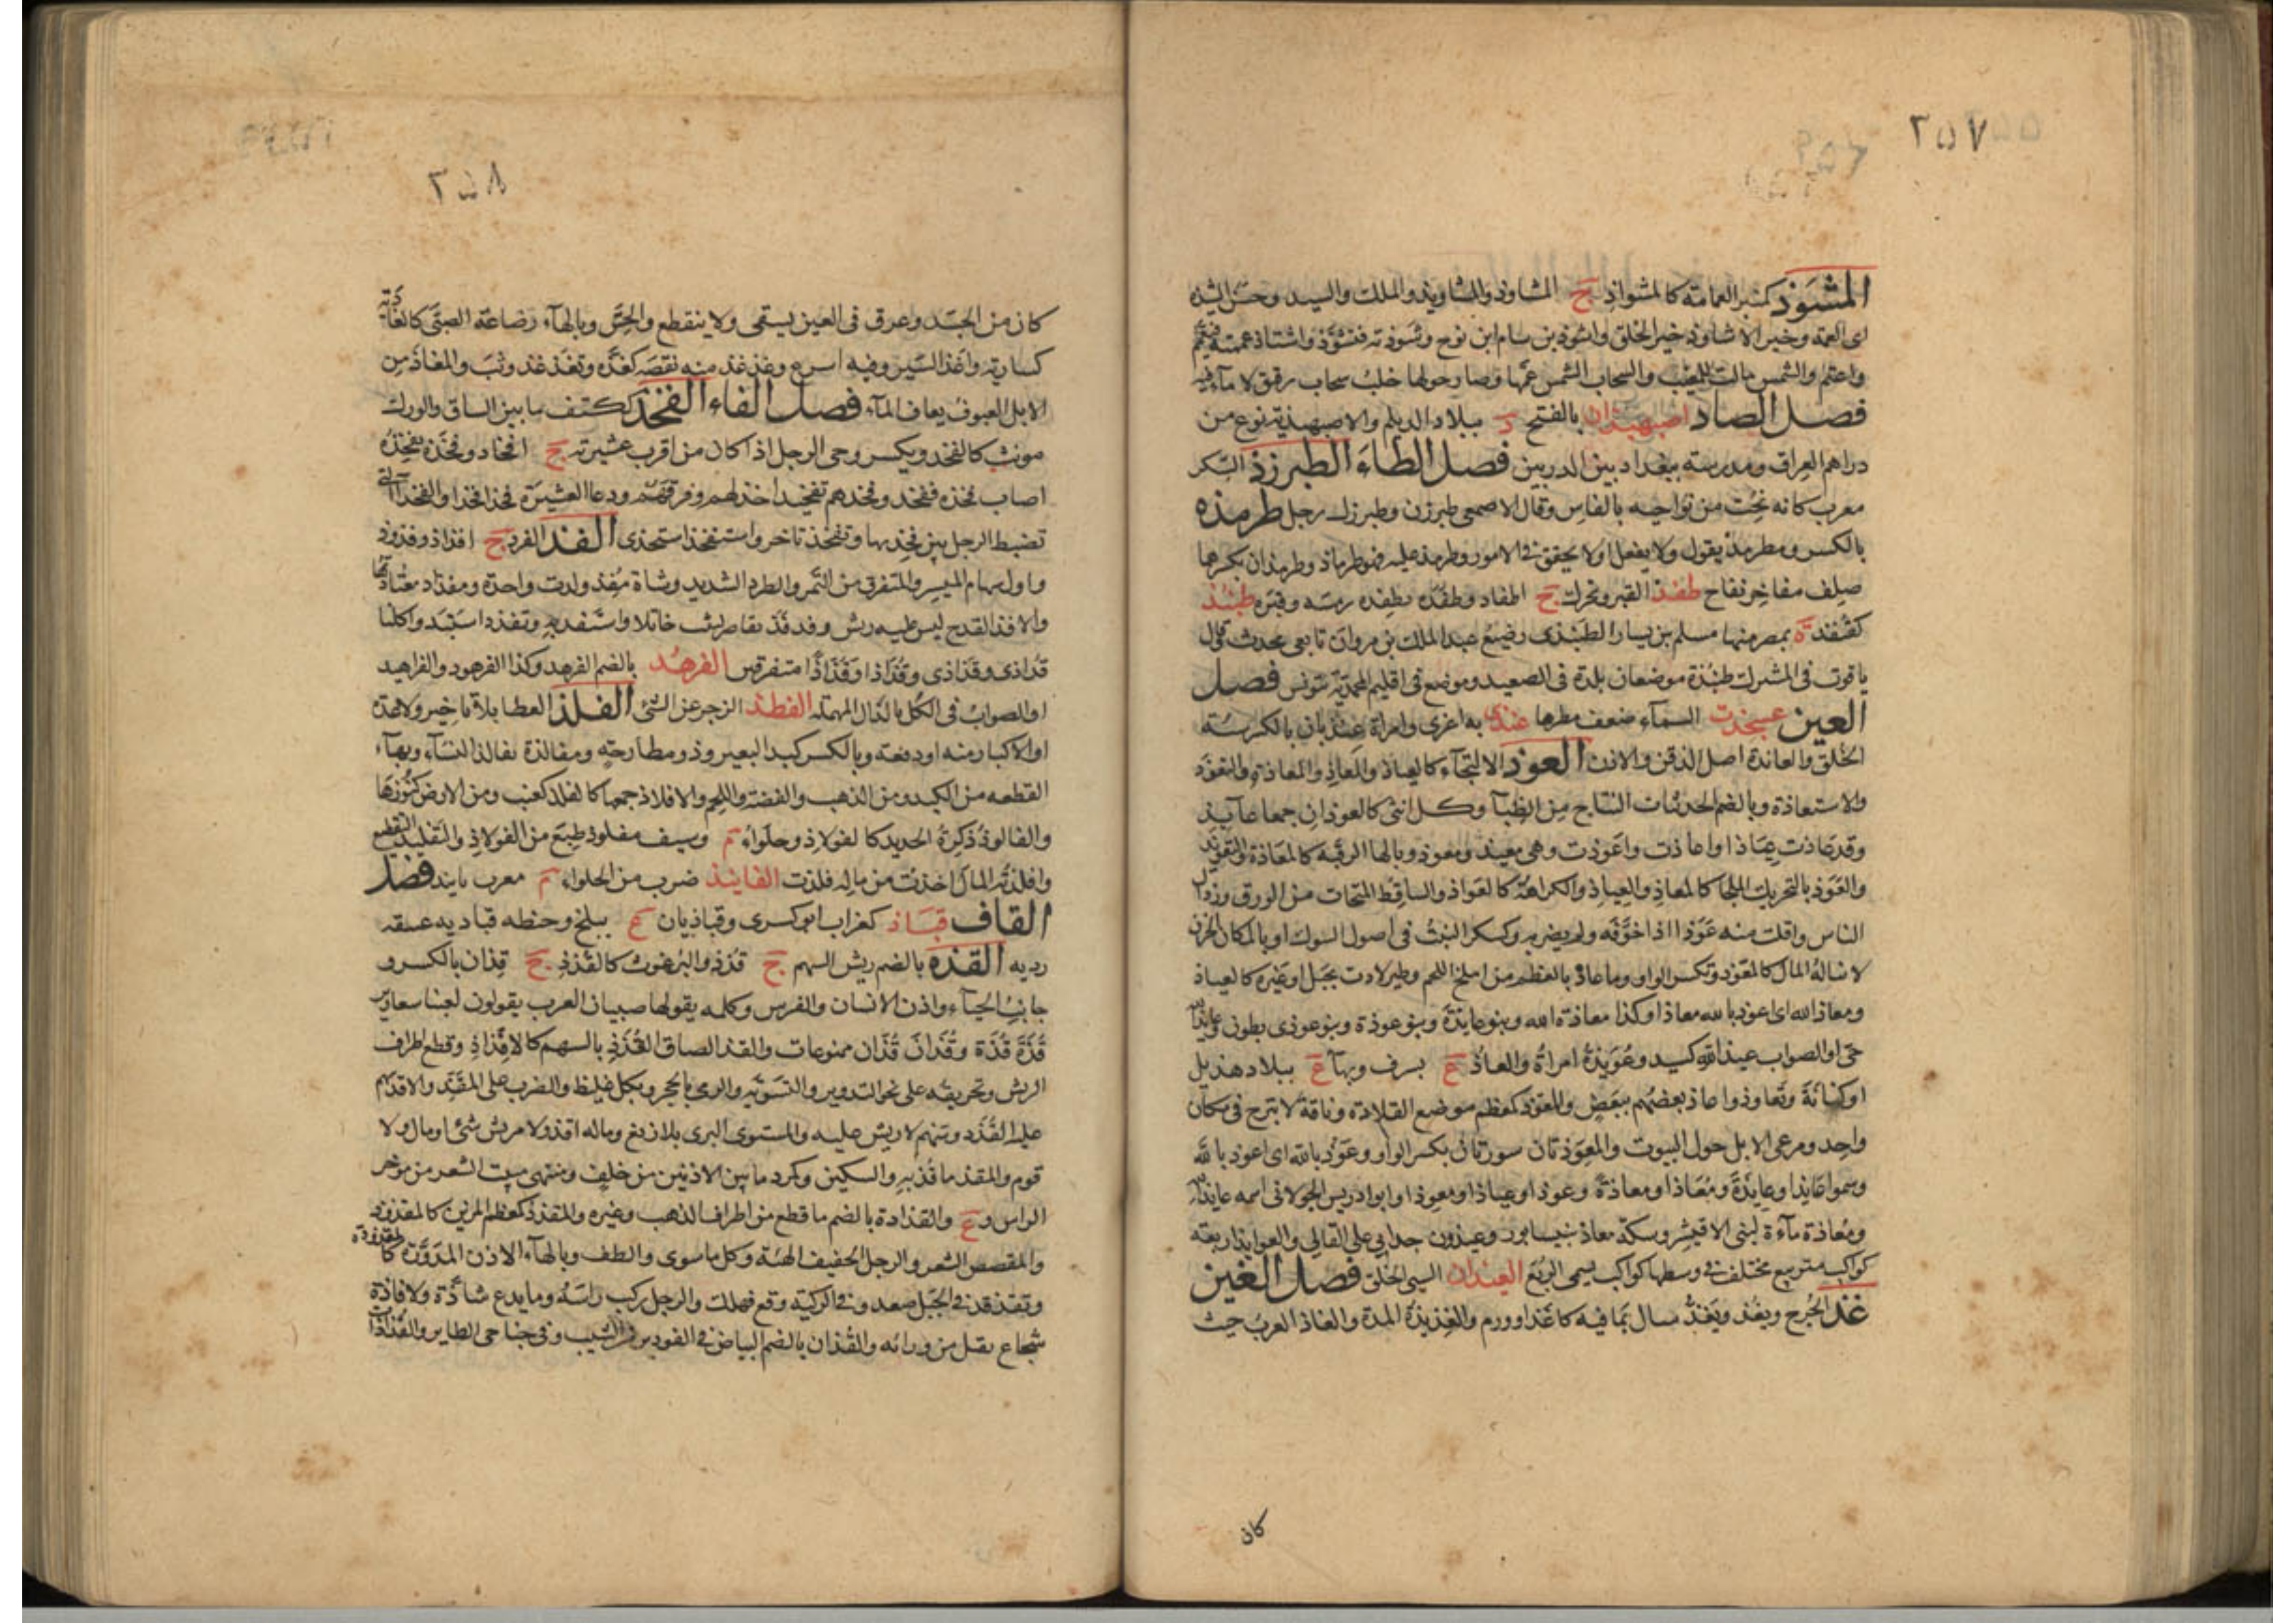 ٢٥٧
المشوذ كمنبر العمامة كالمشواذ ج المشاوذ والمشاويذ والملك والسيد وحسن الشيذة
اى العمة وخير الاشاوذ خير الخلق واشوذ بن سام ابن نوح وشوذته فتشوذ واشتاذ عممته فتعمم
واعتم والشمس مالت للمغيب والسحاب الشمس عمها وصار حولها خلب سحاب رقيق لا ماء فيه
فصل الصاد اصبهبذان بالفتح د ببلاد الديلم والاصبهبذية نوع من
دراهم العراق ومدرسة ببغداد بين الدربين فصل الطاء الطبرزذ السكر
معرب كانه نحت من نواحيه بالفاس وقال الاصمعى طبرزن وطبرزل رجل طرمذه
بالكسر ومطرمذ يقول ولا يفعل او لا يحقق فى الامور وطرمذ عليه فهو طرماذ وطرمذان بكسرهما
صلف مفاخر نفاج طفذ القبر ويحرك ج اطفاذ وطفذه يطفذه رمسه وقبره طبنذ
كقنفذ ة بمصر منها مسلم بن يسار الطبنذى رضيع عبد الملك بن مروان تابعى محدث قال
ياقوت فى المشترك طبنذة موضعان بلدة فى الصعيد وموضع فى اقليم المحمدية بتونس فصل
العين عسجذت السماء ضعف مطرها عنذى به اغرى وامراة عنذيان بالكسر سيئة
الخلق والعانذة اصل الذقن والاذن العوذ الالتجاء كالعياذ والمعاذ والمعاذة والتعوذ
والاستعاذة وبالضم الحديثات النتاج من الظباء وكل انثى كالعوذان جمعا عائذ
وقد عاذت عياذا واعاذت واعوذت وهى معيذ ومعوذ وبالهاء الرقية كالمعاذة والتعويذ
والعوذ بالتحريك الملجا كالمعاذ والعياذ والكراهة كالعواذ والساقط المتحات من الورق ورذال
الناس وافلت منه عوذا اذا خوفه ولم يضربه وكسكر النبت فى اصول الشوك او بالمكان الحزن
لا يناله المال كالمعوذ وتكسر الواو وما عاذ بالعظم من اللحم وطير لاذت بجبل او غيره كالعياذ
ومعاذ الله اى اعوذ بالله معاذا وكذا معاذة الله وبنو عايذة وبنو عوذة وبنو عوذى بطون وعايذ الله
حى او الصواب عيذ الله كسيد وعويذة امراة والعاذ ع بسرف وبهاء ع ببلاد هذيل
او كنانة وتعاوذوا عاذ بعضهم ببعض والمعوذ كمعظم موضع القلادة وناقة لا تبرح فى مكان
واحد ومرعى الابل حول البيوت والمعوذتان سورتان بكسر الواو وعوذ بالله اى اعوذ بالله
وسموا عايذا وعايذة ومعاذا ومعاذة وعوذا وعياذا ومعوذا وابو ادريس الخولانى اسمه عايذ الله
ومعاذة ماءة لبنى الاقيشر وسكة معاذ بنيسابور وعيذون جد ابى على القالى والعوايذ اربعة
كواكب متربع مختلف فى وسطها كواكب يسمى الربع العيذان السيئ الخلق فصل الغين
غذ الجرح ويغذ ويغذ سال بما فيه كاغذ او ورم والغذيذة المدة والغاذ الغرب حيث
كان
٢٥٨
كان من الجسد وعرق فى العين يسقى ولا ينقطع والحس وبالهاء رضاعة الصبى كالغاذية
كسارية واغذ السير وفيه اسرع وغذغذ منه نقصه كغذه وتغذغذ وثب والمغاذ من
الابل العيوف يعاف الماء فصل الفاء الفخذ ككتف ما بين الساق والورك
مونث كالفخذ ويكسر وحى الرجل اذا كان من اقرب عشيرته ج افخاذ وفخذه يفخذه
اصاب فخذه ففخذ وفخذهم تفخيذا خذلهم وفرقهم ودعا العشيرة فخذا فخذا والفخذاء التى
تضبط الرجل بين فخذيها وتفخذ تاخر واستفخذ استخذى الفذ الفرد ج افذاذ وفذوذ
واول سهام الميسر والمتفرق من التمر والطرد الشديد وشاة مفذ ولدت واحدة ومفذاذ معتادتها
والافذ القدح ليس عليه ريش وفذفذ تقاصر ليثب خاتلا واستفذ به وتفذذ استبد واكلنا
فذاذى وفذاذى وفذاذا وفذاذا متفرقين الفرهذ بالضم الفرهد وكذا الفرهود والفراهيد
او الصواب فى الكل بالدال المهملة الفطذ الزجر عن الشئ الفلذ العطا بلا تاخير ولا عدة
او الاكثار منه او دفعة وبالكسر كبد البعير وذو مطارحة ومفالذة يفالذ النساء وبهاء
القطعة من الكبد ومن الذهب والفضة واللحم والافلاذ جمعها كالفلذ كعنب ومن الارض كنوزها
والفالوذ ذكرة الحديد كالفولاذ وحلواء م وسيف مفلوذ طبع من الفولاذ والتفليذ التقطيع
وافلذته المال اخذت من ماله فلذت الفانيذ ضرب من الحلواء م معرب بانيد فصل
القاف قباذ كغراب ابو كسرى وقباذيان ع ببلخ وحنطة قباديه عتيقه
رديه القذه بالضم ريش السهم ج قذذ والبرغوث كالقذذ ج قذان بالكسر و
جانب الحياء واذن الانسان والفرس وكلمه يقولها صبيان العرب يقولون لعبنا شعارير
قذة قذة وقذان قذان ممنوعات والقذ الصاق القذذ بالسهم كالاقذاذ وقطع اطراف
الريش وتحريفه على نحو التدوير والتسويه والرمى بالحجر وبكل غليظ والضرب على المقذ والاقذ سهم
عليه القذذ وسهم لا ريش عليه والمستوى البرى بلا زيغ وماله اقذ ولا مريش شئ او مال ولا
قوم والمقذ ما قذ به والسكين وكرد ما بين الاذنين من خلف ومنتهى منبت الشعر من موخر
الراس و ع والقذاذة بالضم ما قطع من اطراف الذهب وغيره والمقذذ كمعظم المزين كالمقذوذ
والمقصص الشعر والرجل الخفيف الهيئة وكل ما سوى والطف وبالهاء الاذن المدورة كالمقذوذة
وتقذقذ فى الجبل صعد وفى الركية وقع فهلك والرجل ركب راسه وما يدع شاذة ولا قاذة
شجاع يقتل من وراءه والقذان بالضم البياض فى الفودين من الشيب وفى جناحى الطاير والقذاذات